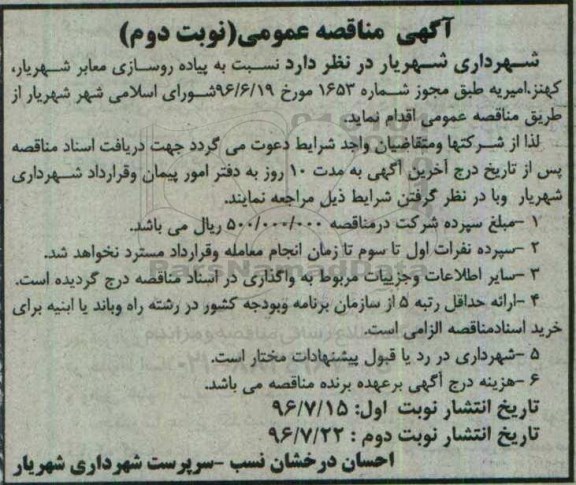 آگهی مناقصه عمومی(نوبت دوم)
شهرداری شهریار در نظر دارد نسبت به پیاده روسازی معابر شهریار،
کهنز،امیریه طبق مجوز شماره ۱۶۵۳ مورخ ۹۶/۶/۱۹شورای اسلامی شهر شهریار از
طریق مناقصه عمومی اقدام نماید.
لذا از شرکتها ومتقاضیان واجد شرایط دعوت می گردد جهت دریافت اسناد مناقصه
پس از تاریخ درج آخرین آگهی به مدت ۱۰ روز به دفتر امور پیمان وقرارداد شهرداری
شهریار وبا در نظر گرفتن شرایط ذیل مراجعه نمایند.
۱ -مبلغ سپرده شرکت درمناقصه ۵۰۰/۰۰۰/۰۰۰ ریال می باشد.
۲ -سپرده نفرات اول تا سوم تا زمان انجام معامله وقرارداد مسترد نخواهد شد.
۳ -سایر اطلاعات وجزییات مربوط به واگذاری در اسناد مناقصه درج گردیده است.
۴ -ارائه حداقل رتبه ۵ از سازمان برنامه وبودجه کشور در رشته راه وباند یا ابنیه برای
خرید اسنادمناقصه الزامی است.
۵ -شهرداری در رد یا قبول پیشنهادات مختار است.
۶ -هزینه درج آگهی برعهده برنده مناقصه می باشد.
تاریخ انتشار نوبت اول: ۹۶/۷/۱۵
تاریخ انتشار نوبت دوم : ۹۶/۷/۲۲
احسان درخشان نسب -سرپرست شهرداری شهریار
ParsNamadData